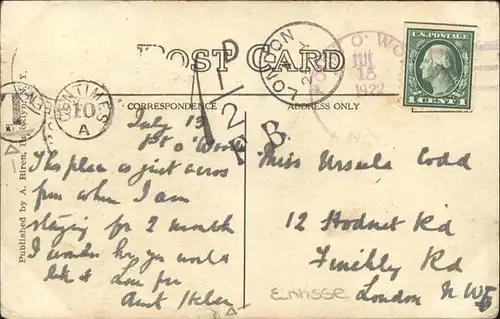 POST CARD
CORRESPONDENCE
ADDRESS ONLY
U.S. POSTAGE
1 CENT 1
JUL
13
1922
LONDON
CENTIMES
10
A
T
1D
1/2
F.B.
July 13
Pt o' Woods
This place is just across
from where I am
staying for 2 month
I wonder how you would
like it Love from
Aunt Helen
Miss Ursula Codd
12 Hodnet Rd
Finchly Rd
London N W
Published by A. Biren,